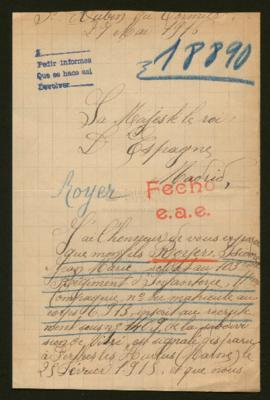 St Aubin du Cormier
27 Mai 1916
A
Pedir informes
Que se hace asi
Devolver
18890
Sa Majesté le roi
D'Espagne
Madrid,
Royer
Fecho
e.a.e.
J'ai l'honneur de vous exposer
que mon fils Royer,
Jean Marie, soldat au 103
Régiment d'Infanterie,
Compagnie, n° du matricule au
corps 6.915, inscrit au recrute
ment sous n° 1469 de la subdivi
sion de Vitré, est signalé disparu
à Perthes les Hurlus (Marne) le
25 février 1915, et que nous